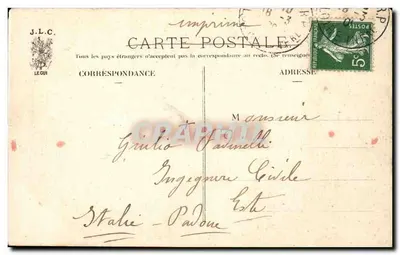 imprimé
J.L.C.
LE GUI
CARTE POSTALE
Tous les pays étrangers n'acceptent pas la correspondance au recto (Se renseigner
CORRESPONDANCE
ADRESSE
5c
POSTES
CPARAMA
Monsieur
Giulio Padinelli
Ingegnere Civile
Este
Italie - Padoue